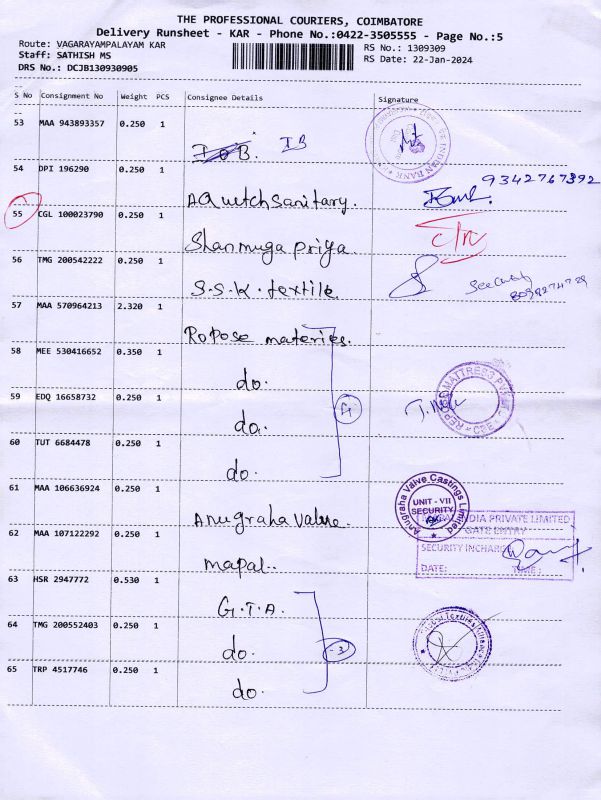 THE PROFESSIONAL COURIERS, COIMBATORE
Delivery Runsheet - KAR - Phone No.:0422-3505555 - Page No.:5
Route: VAGARAYAMPALAYAM KAR
RS No.: 1309309
Staff: SATHISH MS
RS Date: 22-Jan-2024
DRS No.: DCJB130930905
S No Consignment No Weight PCS Consignee Details Signature
53 MAA 943893357 0.250 1
IOB. IB
INDIAN BANK
54 DPI 196290 0.250 1
9342767392
AQuetchsanitary.
55 CGL 100023790 0.250 1
Shanmuga Priya
56 TMG 200542222 0.250 1
S.S.K. textile
57 MAA 570964213 2.320 1
Ropose materies.
58 MEE 530416652 0.350 1
do.
59 EDQ 16658732 0.250 1
do.
60 TUT 6684478 0.250 1
do.
61 MAA 106636924 0.250 1
Anugraha Valve Castings Limited
UNIT - VII
SECURITY
Anugraha Valve.
62 MAA 107122292 0.250 1
INDIA PRIVATE LIMITED
GATE ENTRY
SECURITY INCHARGE
DATE: TIME:
mapal..
63 HSR 2947772 0.530 1
G.T.A.
64 TMG 200552403 0.250 1
do.
3
65 TRP 4517746 0.250 1
do.